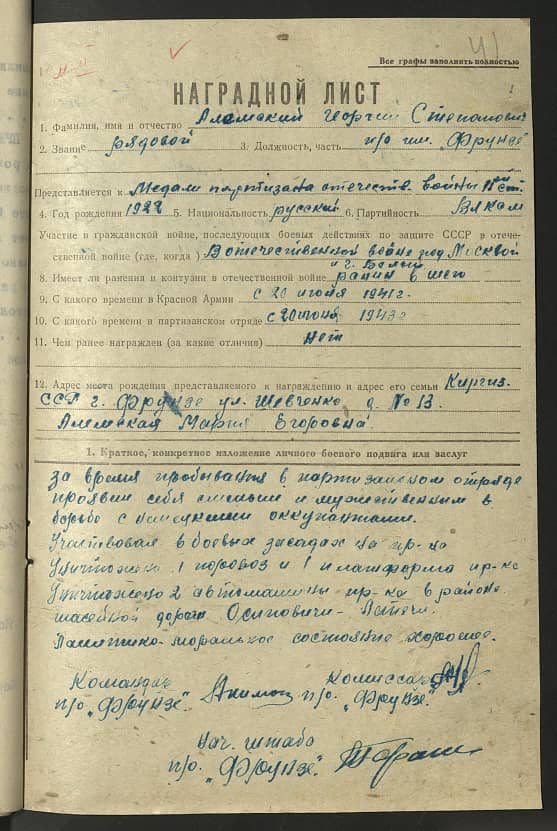 41
Все графы заполнять полностью
НАГРАДНОЙ ЛИСТ
1. Фамилия, имя и отчество Алемский Георгий Степанович
2. Звание рядовой 3. Должность, часть п/о им. "Фрунзе"
Представляется к Медали партизана отечеств. войны II ст.
4. Год рождения 1922 5. Национальность русский 6. Партийность ВЛКСМ
Участие в гражданской войне, последующих боевых действиях по защите СССР в отече-
ственной войне (где, когда) В отечественной войне под Москвой
и г. Белый
8. Имеет ли ранения и контузии в отечественной войне ранен в шею
9. С какого времени в Красной Армии с 20 июля 1941 г.
10. С какого времени в партизанском отряде с 20 июня 1943 г.
11. Чем ранее награжден (за какие отличия) Нет
12. Адрес места рождения представляемого к награждению и адрес его семьи Киргиз.
ССР г. Фрунзе ул. Шевченко д. № 13
Алемская Мария Егоровна
1. Краткое, конкретное изложение личного боевого подвига или заслуг
За время пребывания в партизанском отряде
проявил себя смелым и мужественным в
борьбе с немецкими оккупантами.
Участвовал в боевых засадах на пр-ка
Уничтожено 1 паровоз и 1 платформа пр-ка
Уничтожено 2 автомашины пр-ка в районе
шасейной дороги Осиповичи - Лапичи.
Политико-моральное состояние хорошее.
Командир Комиссар
п/о "Фрунзе". п/о "Фрунзе".
Нач. штаба
п/о "Фрунзе".